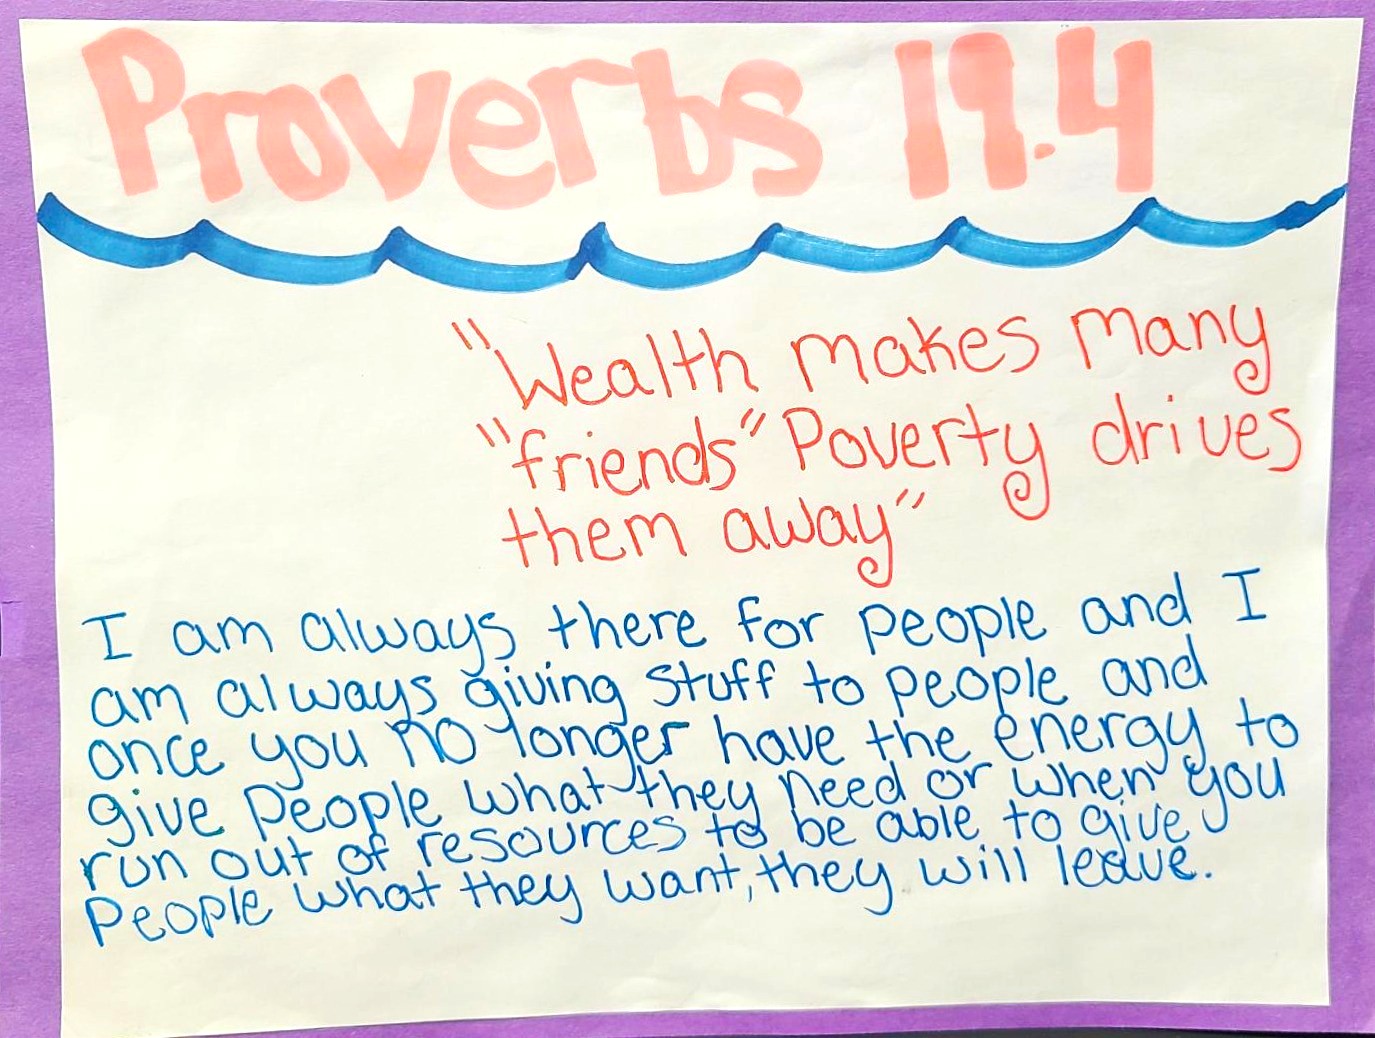 Proverbs 19.4
"Wealth makes many
"friends" Poverty drives
them away"
I am always there for people and I
am always giving stuff to people and
once you no longer have the energy to
give people what they need or when you
run out of resources to be able to give
people what they want, they will leave.